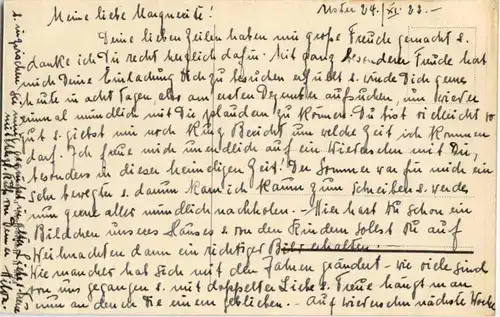 Uster 24. XI. 33.-
Meine liebe Marguerite!
Deine lieben Zeilen haben mir große Freude gemacht &
danke ich Du recht herzlich dafür. Mit ganz besonderer Freude hat
mich Deine Einladung Dich zu besuchen erfüllt & würde Dich gerne
heute in acht Tagen, also am ersten Dezember aufsuchen, um wieder
einmal mündlich mit Dir plaudern zu können. Du bist vielleicht so
gut & giebst mir noch kurz Bericht um welche Zeit ich kommen
darf. Ich freue mich unendlich auf ein Wiedersehn mit Dir,
besonders in dieser heimeligen Zeit! Der Sommer war für mich ein
sehr bewegter & darum kam ich kaum zum schreiben & werde
nun gerne alles mündlich nachholen. - Hier hast Du schon ein
Bildchen unseres Hauses & von den Kindern sollst Du auf
Weihnachten dann ein richtiger Bild erhalten. -
Wie mancher hat sich mit den Jahren geändert - wie viele sind
von uns gegangen & mit doppelter Liebe & Treue hängt man
nun an denen die einem geblieben. - Auf Wiedersehn nächste Woche